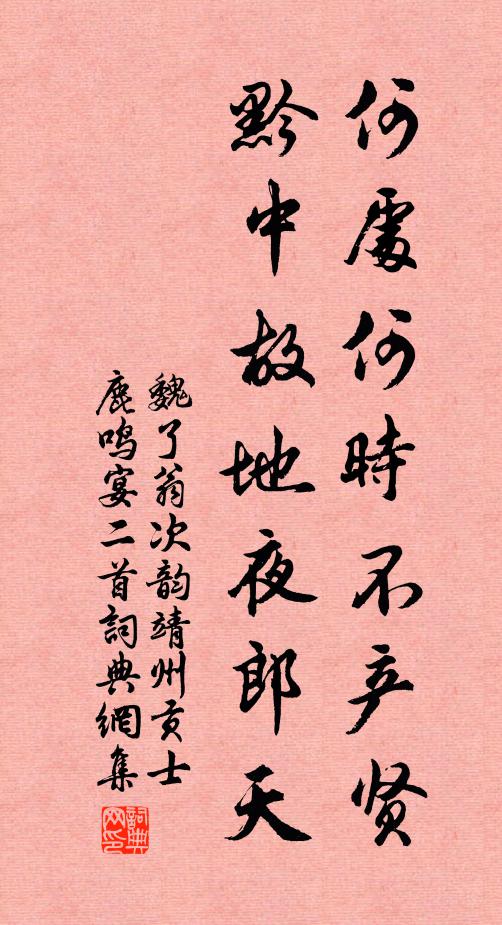 何處何時不产贤
黔中故地夜郎天
魏了翁次韵靖州贡士
鹿鸣宴二首詞典網集
詞典网印